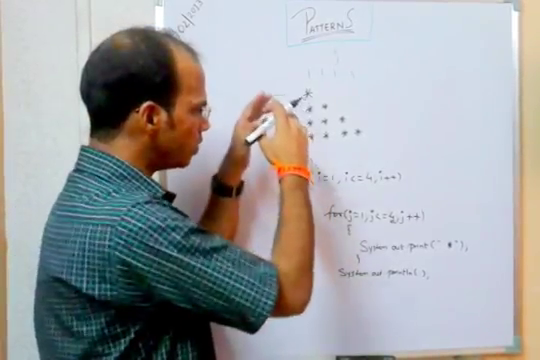 02/2013
PATTERNS
*
* *
* * *
* * * *
(i=1, i<=4, i++)
for(j=1, j<=4, j++)
{
System out print(" * "),
}
System out println( ),